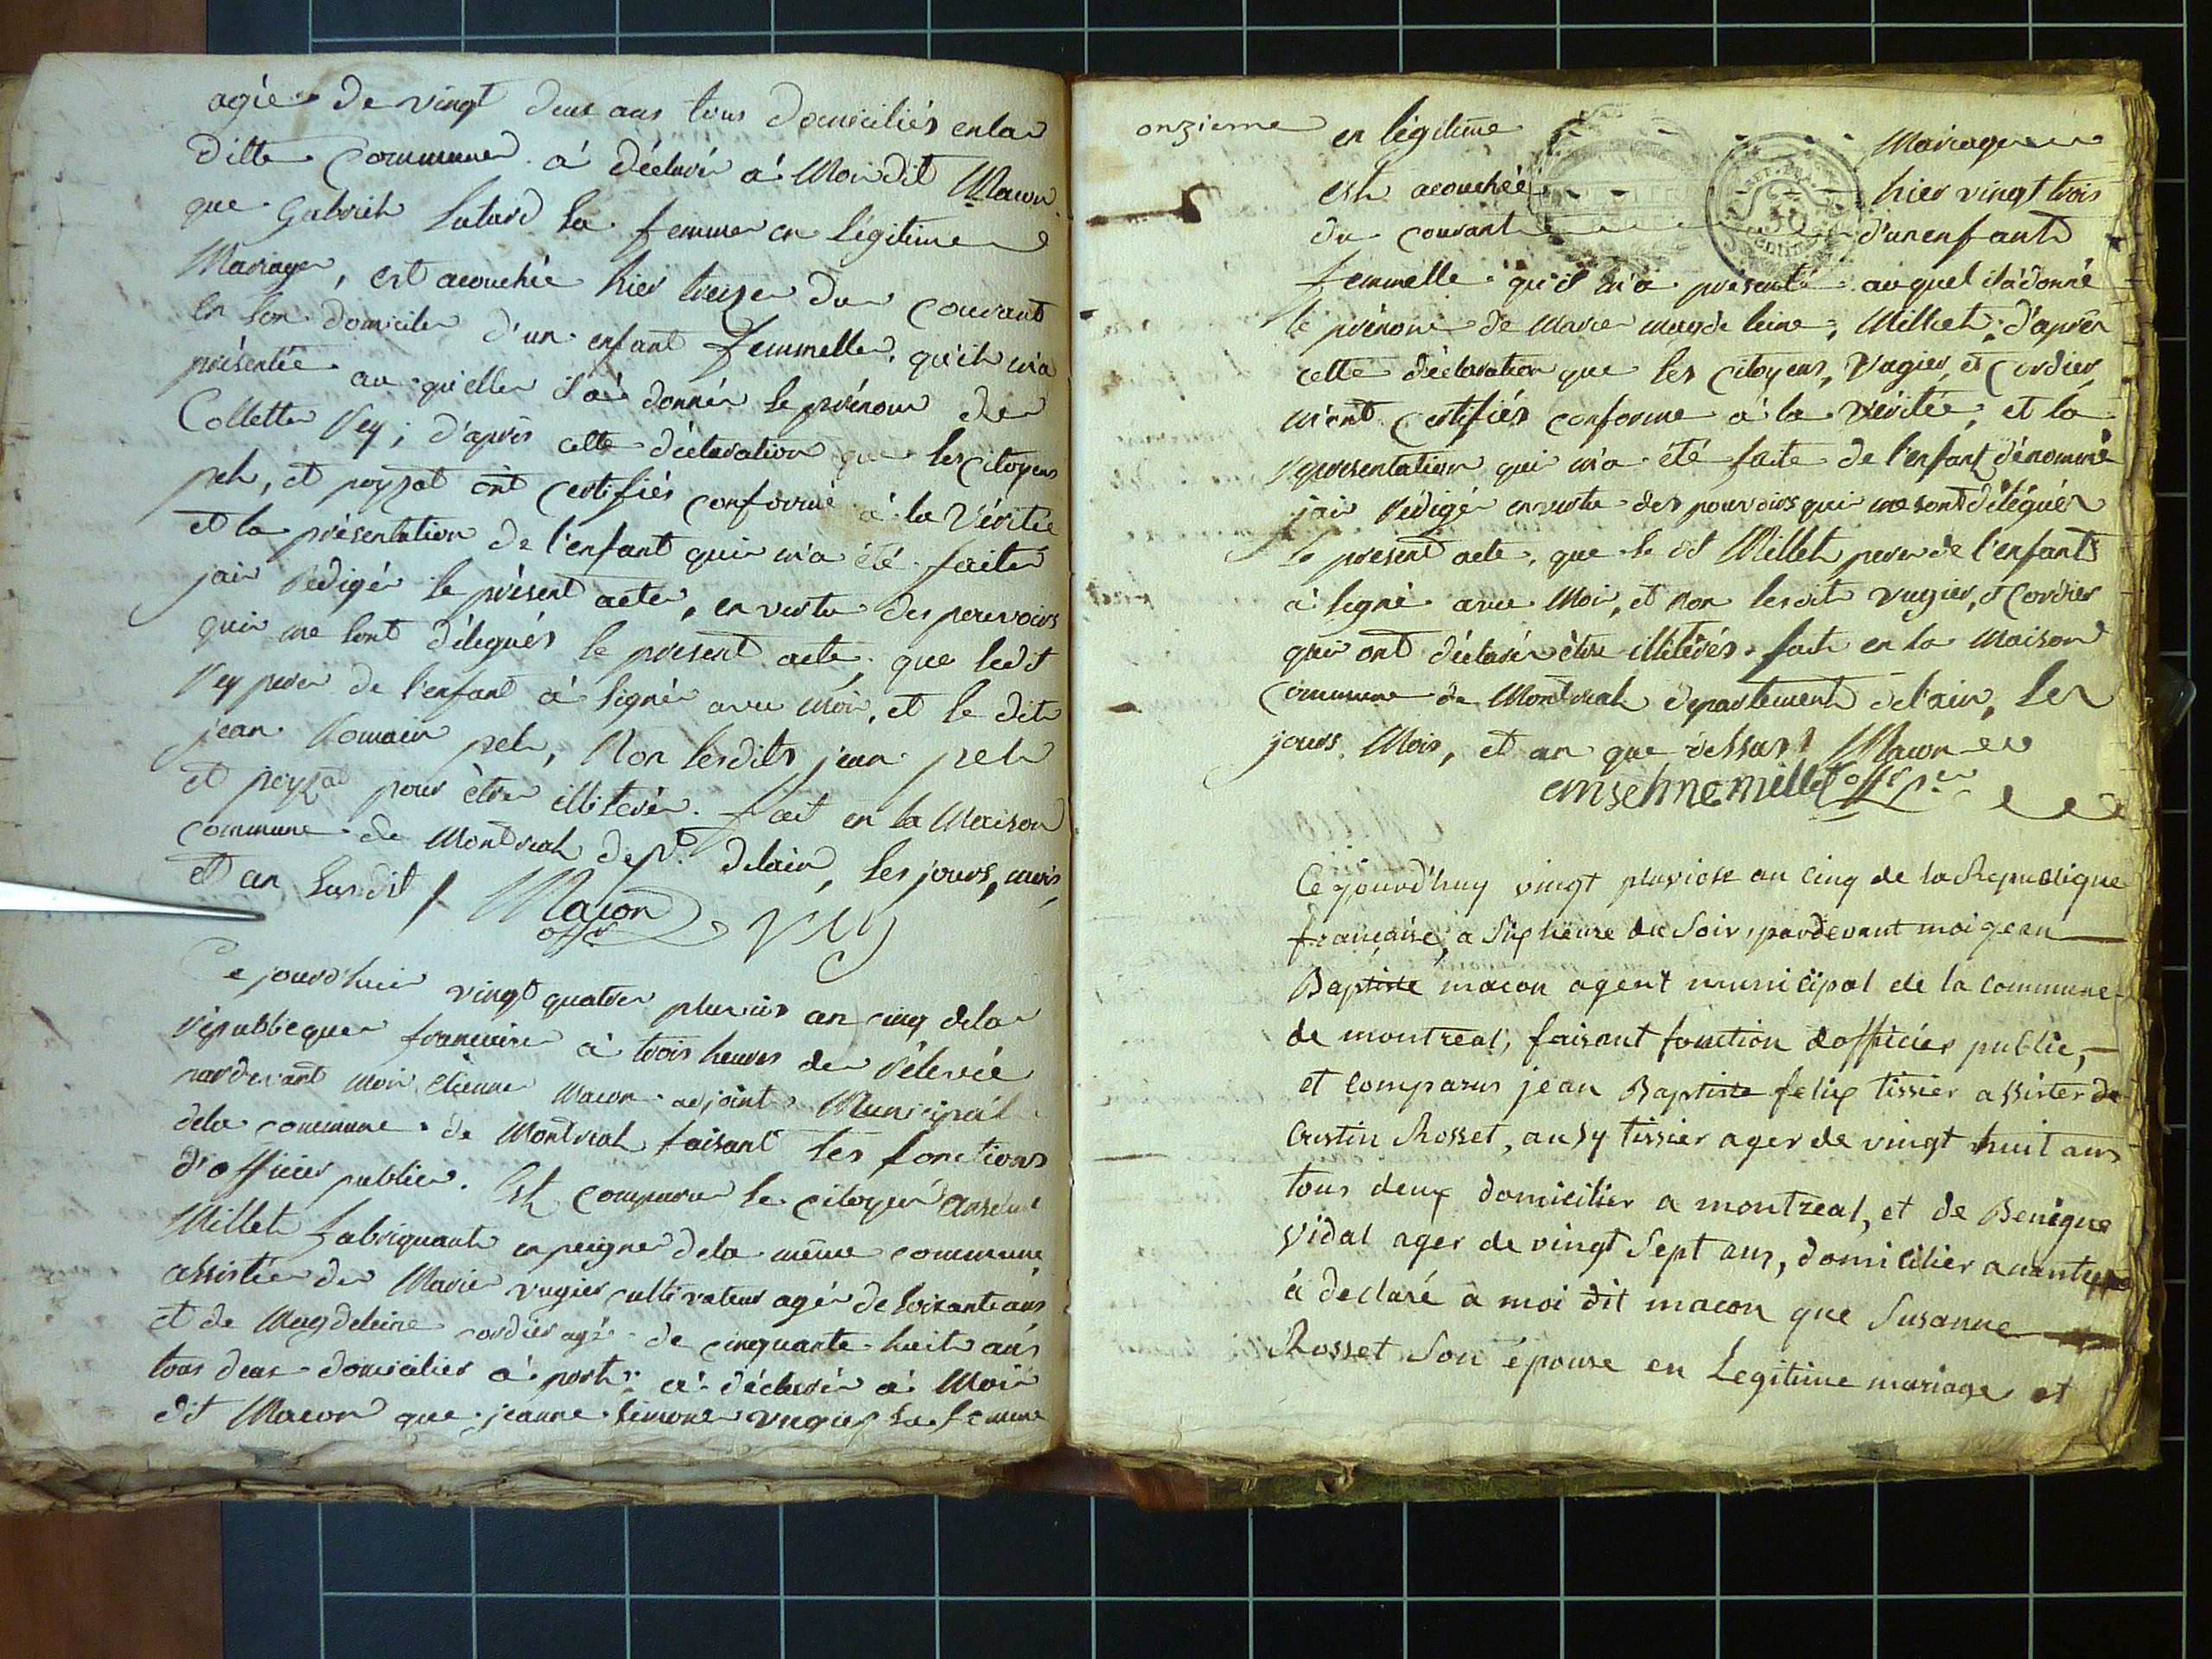 agée de vingt deux ans tous domiciliés en la
ditte Commune. à déclaré à Moi dit Macon
que Gabriele Lutard sa femme en légitime
Mariage, est acouchée hier treize du Courant
en son domicile d'un enfant femmelle, qu'il m'a
présentée au quelle il a donné le prénom de
Collette Vey; d'après cette déclaration que les citoyens
pel, et poyzat ont certifiés conforme à la Vérité
et la présentation de l'enfant qui m'a été faite
j'ai Rédigé le présent acte, en vertu des pouvoirs
qui me sont délégués le present acte, que ledit
Vey pere de l'enfant à signé avec moi, et le dit
jean Romain pel, Non lesdits jean pel
et poyzat pour être illiteré. fait en la Maison
Commune de Montreal dept. delain, les jours, mois,
et an susdit / Macon Vey
offr
Ce jourd'hui vingt quatre pluvios an cinq dela
république francaise à trois heures de Rélevée
pardevant moi etienne Macon adjoint Municipal
dela commune de Montreal faisant les fonctions
d'officier public. Est comparu le citoyen Anselme
Millet fabriquant en peigne dela même commune,
assistée de Marie vugier cultivateur agé de soixante ans
et de Magdeleine cordier agé de cinquante huit ans
tous deux domicilier à port à déclaré à Moi
dit Macon que jeanne simone vugier sa femme
onzieme
en légitime Mariage
est acouchée hier vingt trois
du courant d'un enfant
femmelle qu'il m'a présenté auquel il a donné
le prénom de Marie magdeleine, Millet; d'après
cette déclaration que les citoyens, Vugier, et Cordier
m'ont certifiés conforme à la vérité, et la
représentation qui m'a été faite de l'enfant dénommé
j'ai Rédigé en vertu des pouvoirs qui me sont délégués
le présent acte, que le dit Millet pere de l'enfant
à signé avec Moi, et Non lesdit vugier, et Cordier
qui ont déclaré être illiterés. fait en la Maison
Commune de Montreal département de l'ain, les
jours, Mois, et an que dessus / Macon
anselme millet off. p.
Ce jourd'huy vingt pluviose an cinq de la Republique
française, a six heure du Soir, pardevant moi jean
Baptiste macon agent municipal de la Commune
de montreal, faisant fonction d'officier public,
et Comparus jean Baptiste felix tissier assister de
Custin Rosset, aussy tissier ager de vingt huit ans
tous deux domicilier a montreal, et de Benigne
Vidal ager de vingt Sept ans, domicilier a nantua
à declaré à moi dit macon que Susanne
Rosset Son épouse en Legitime mariage et